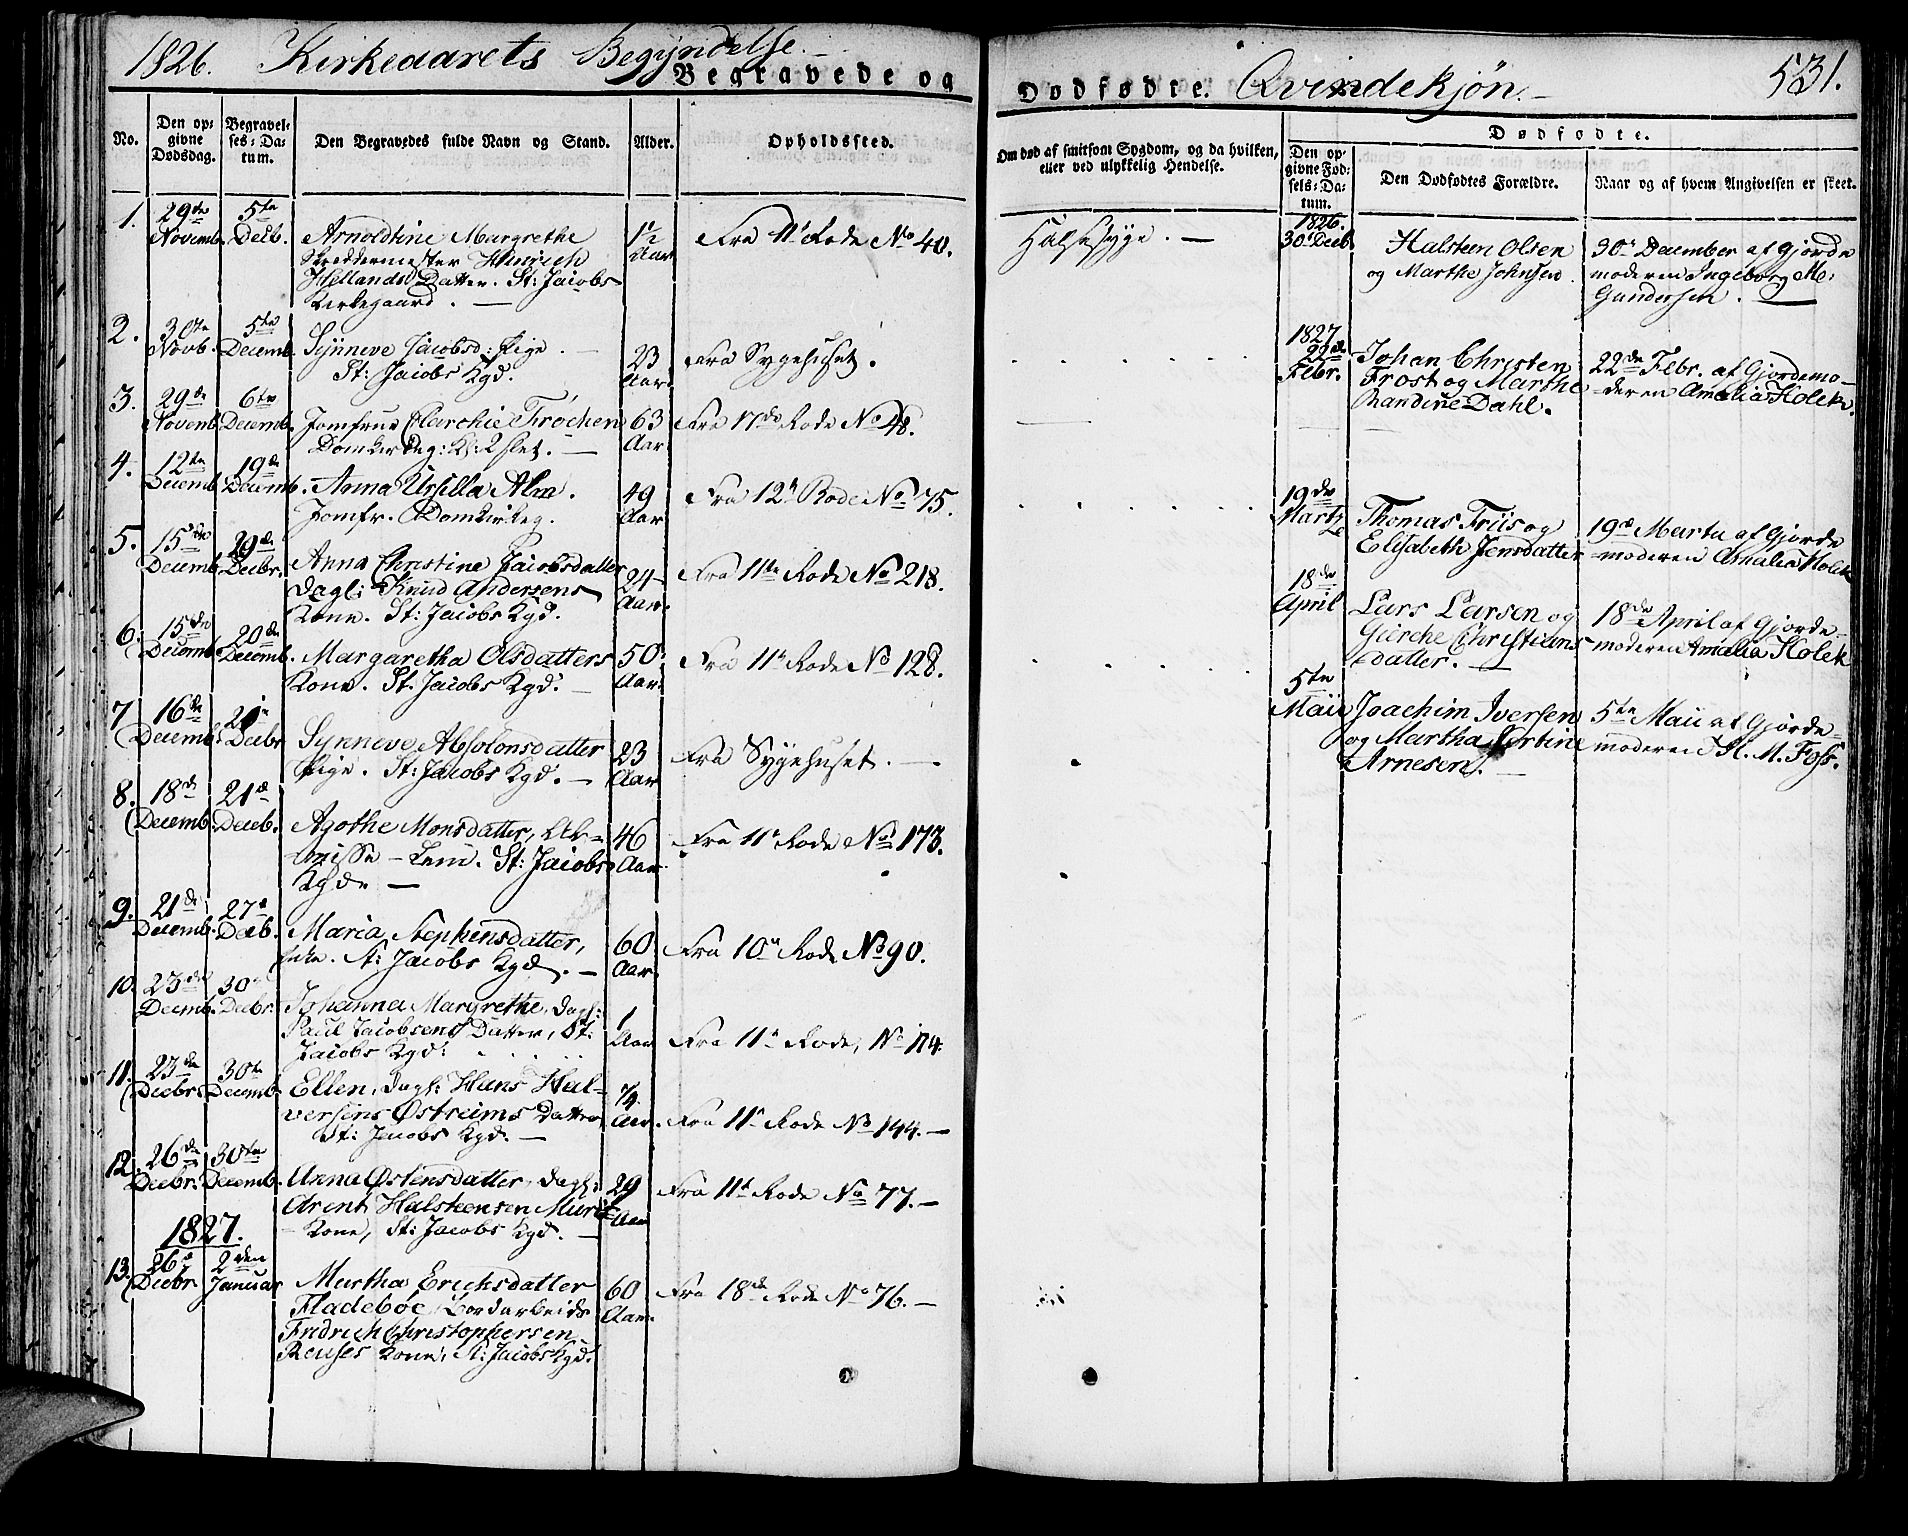 1826. Kirkeaarets Begyndelse.
Begravede og
Dødfødte. Qvindekjøn. 531.
No.
Den opgivne Dødsdag.
Begravelses-Datum.
Den Begravedes fulde Navn og Stand.
Alder.
Opholdssted.
Om død af smitsom Sygdom, og da hvilken, eller ved ulykkelig Hendelse.
Dødfødte.
Den opgivne Fødsels-Datum.
Den Dødfødtes Forældre.
Naar og af hvem Angivelsen er skeet.
1. 29de Novemb. 5te Decb. Arnoldtine Margrethe
Skreddermester Hinrich
Hellands Datter. St: Jacobs
Kirkegaard. —
1½ Aar
Fra 11te Rode No 40.
Halssyge. —
2. 30te Novb. 5te Decemb. Synneve Jacobsd: Pige. —
St: Jacobs Kgd.
23 Aar
Fra Sygehuset.
3. 29de Novemb. 6te Decemb. Jomfrue Harchie Trøchen
Domkirkeg: Kl: 2 slet. —
63 Aar
Fra 17de Rode No 48.
4. 12te Decemb. 19de Decemb. Anna Ursilla
Jomfr. Domkirkeg.
49 Aar
Fra 12te Rode No 75.
5. 15de Decemb. 29de Decbr. Anna Christine Jacobsdatter
Dagl: Knud Andersens
Kone. St: Jacobs Kgd.
24 Aar.
Fra 11te Rode No 218.
6. 15de Decemb. 20de Decemb. Margaretha Olsdatters
Kone. St. Jacobs Kgd. —
50 Aar.
Fra 11te Rode No 128.
7 16de Decemb. 21de Decbr Synneve Absolonsdatter
Pige. St: Jacobs Kgd. —
23 Aar
Fra Sygehuset. —
8. 18de Decemb. 21de Decb. Agothe Monsdatter,
Lem. St: Jacobs
Kgde —
46 Aar
Fra 11te Rode No 173.
9. 21de Decemb. 27de Decb. Maria Stephensdatter,
Enke. St: Jacobs Kgd. —
60 Aar
Fra 10de Rode No 90.
10. 23de Decemb. 30te Decbr. Johanna Margrethe, Dagl:
Paul Jacobsens Datter, St:
Jacobs Kgd:
1 Aar
Fra 11te Rode, No 174.
11. 23de Decbr. 30te Decemb. Ellen, Dagl: Hans Hal-
versens Østreims Datter
St: Jacobs Kgd. —
Aar.
Fra 11te Rode No 144. —
12. 26de Decbr. 30te Decemb. Anna Østensdatter, Dagl:
Arent Halsteensen
Kone, St: Jacobs Kgd. —
29 Aar
Fra 11te Rode No 77. —
1827.
13. 26de Decbr 2den Januar Martha Erichsdatter
Fladebøe, Bordarbeids
Fridrich Christophersen
Reuses Kone, St: Jacobs Kgd.
60 Aar.
Fra 18de Rode No 76. —
1826.
30te Decb. Halsteen Olsen
og Marthe Johnsen.
30te December af Gjorde
moderen Ingeborg M.
Gundersen. —
1827
22de Febr. Johan Christen
Frost og Marthe
Randine Dahl.
22de Febr. af Gjordemo-
deren Amalia Holck.
19de Marts Thomas Friis og
Elisabeth Jensdatter
19de Marts af Gjorde
moderen Amalia Holck
18de April Lars Larsen og
Gierche Christians
datter. —
18de April af Gjorde-
moderen Amalia Holck
5te Maii Joachim Iversen
og Martha
Arnesen. —
5te Maii af Gjorde-
moderen H. M. Foss.